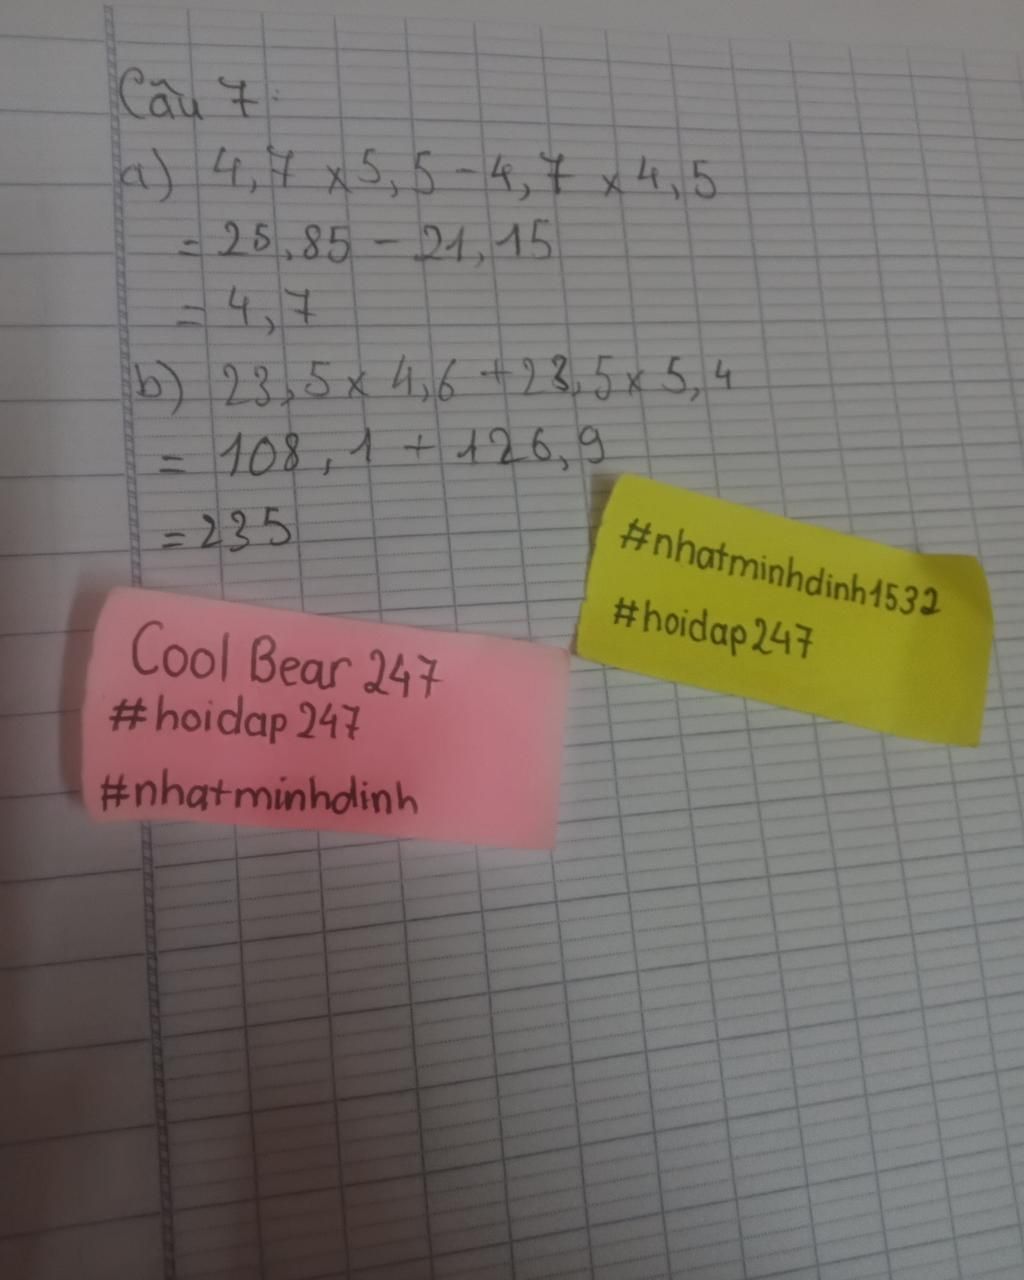 Câu 7:
a) 4,7 x 5,5 - 4,7 x 4,5
= 25,85 - 21,15
= 4,7
b) 23,5 x 4,6 + 23,5 x 5,4
= 108,1 + 126,9
= 235
#nhatminhdinh1532
#hoidap247
Cool Bear 247
#hoidap247
#nhatminhdinh